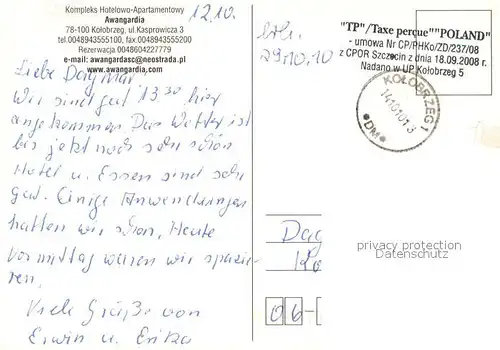 Kompleks Hotelowo-Apartamentowy
Awangardia
78-100 Kołobrzeg, ul. Kasprowicza 3
tel. 0048943555100, fax. 0048943555200
Rezerwacja 0048604227779
e-mail: awangardasc@neostrada.pl
www.awangardia.com
12.10.
Liebe Dagmar
Wir sind gut 13 30 hier
angekommen Das Wetter ist
bis jetzt noch sehr schön
Hotel u. Essen sind sehr
gut. Einige Anwendungen
hatten wir schon, Heute
vormittag waren wir spazie-
ren,
Viele Grüße von
Erwin u. Erika
29.10.10
"TP"/Taxe perçue""POLAND"
- umowa Nr CP/PHKo/ZD/237/08
z CPOR Szczecin z dnia 18.09.2008 r.
Nadano w UP Kołobrzeg 5
KOŁOBRZEG 1
*DM*
Da
privacy protection
Datenschutz
06-